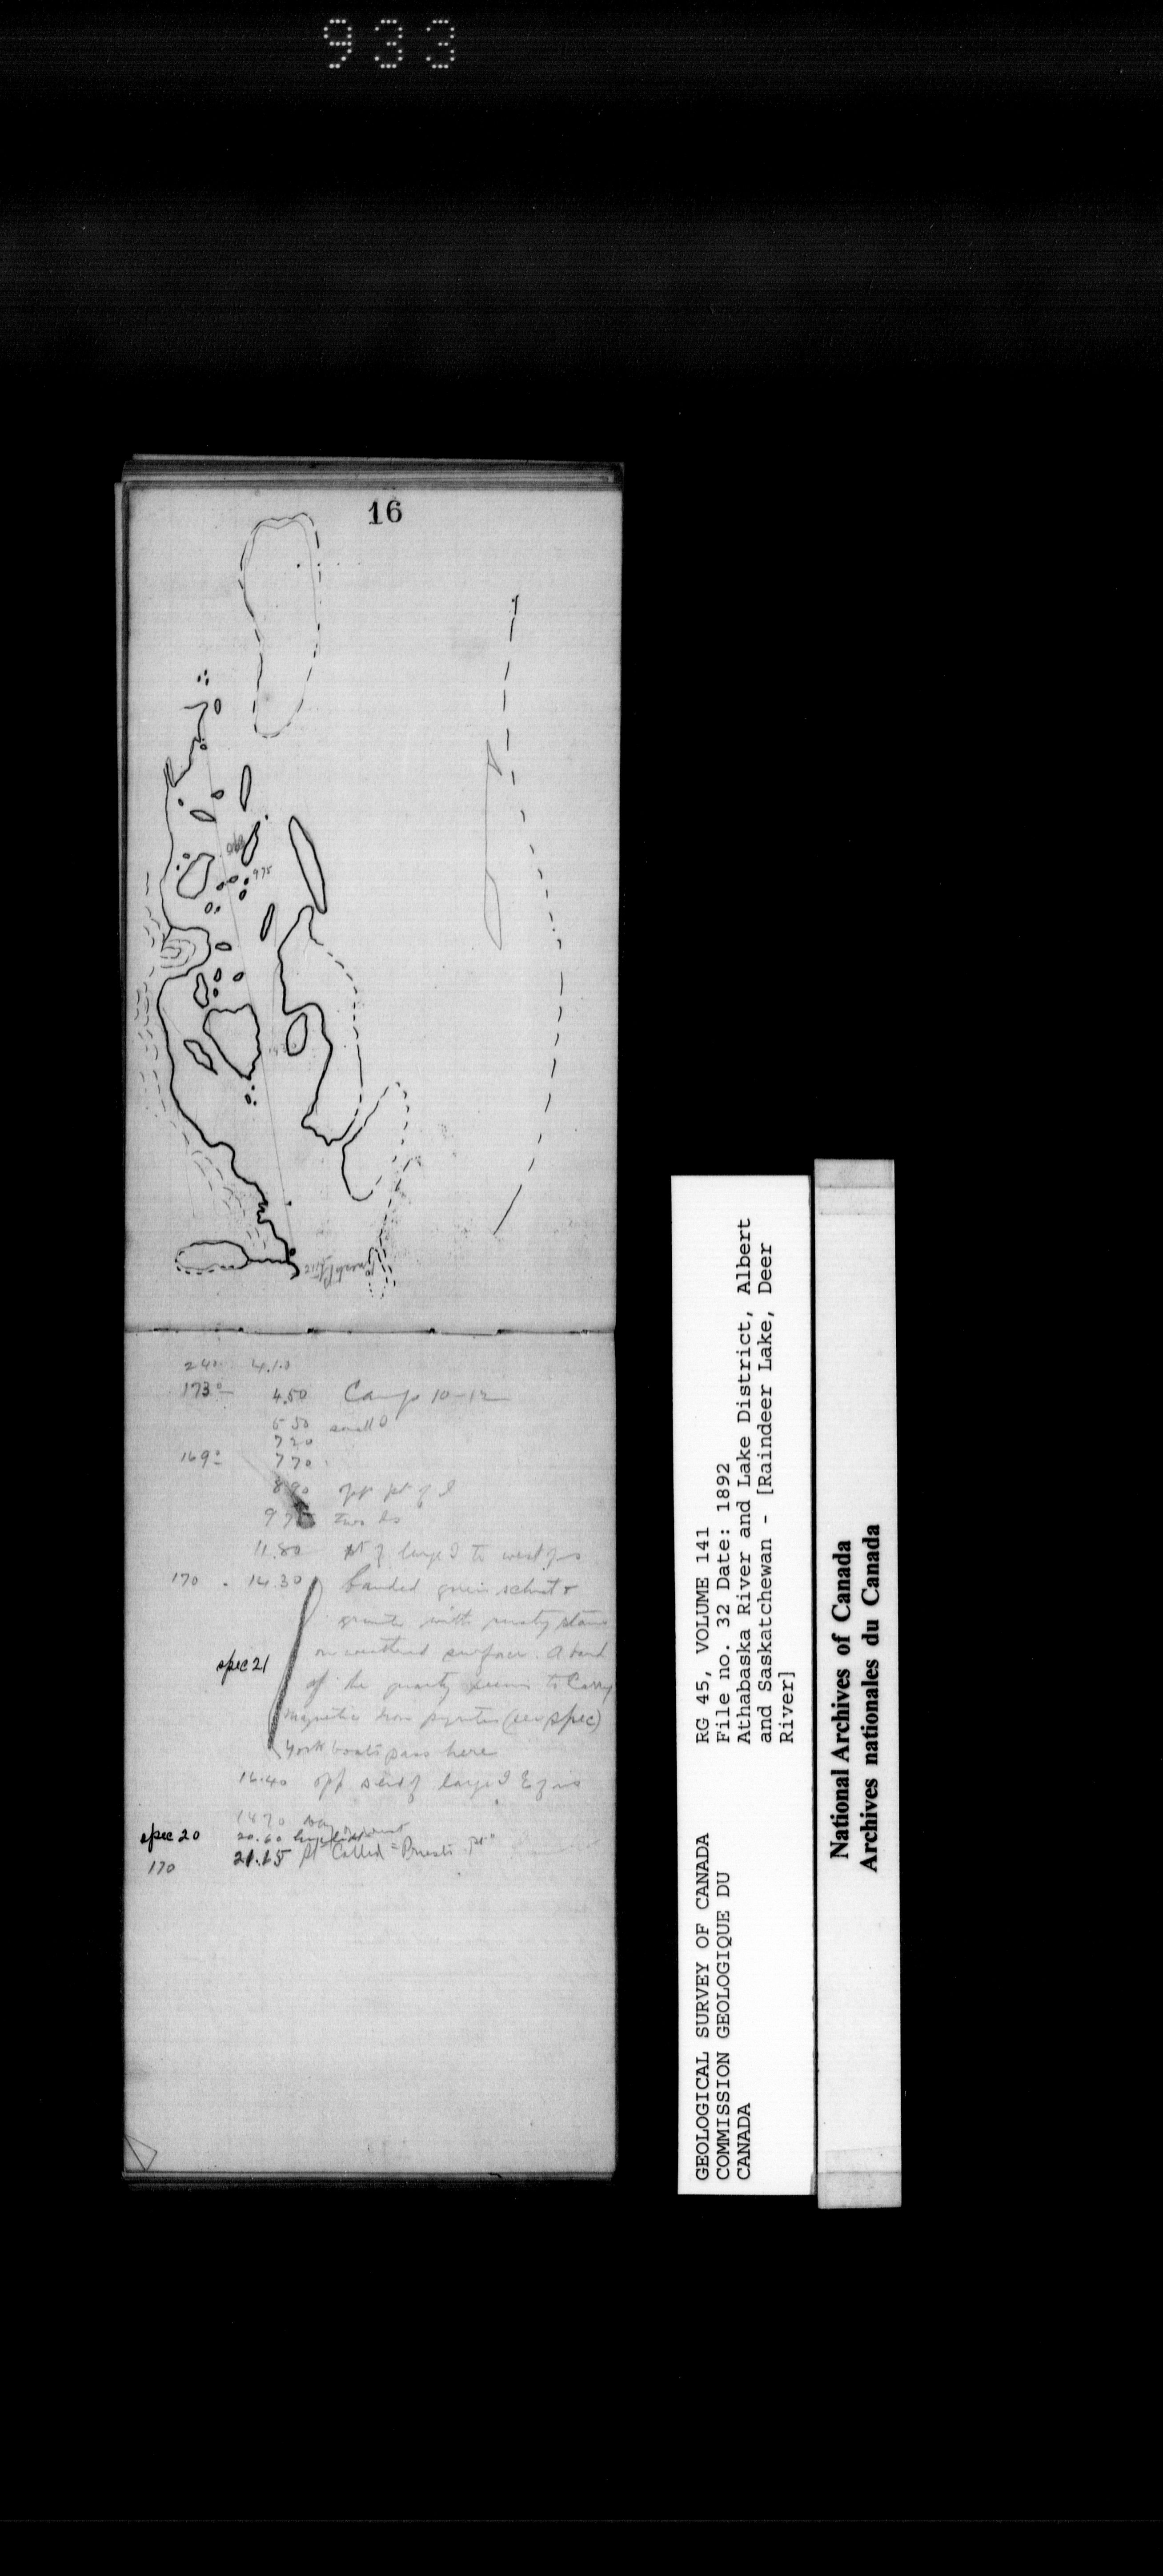 933
16
975
240 4.10
173° 4.50 Camp 10-12
6 50 small I
7 20
169° 770
890 opp pt of I
975 two Is
11.80 pt of large I to west
170 . 14.30 banded green schist &
with rusty stains
on weathered surface. A band
of the quartz seems to carry
spec 21
magnetic iron pyrites (see spec)
York boats pass here
16.40 opp s end of large I E of us
1870
spec 20 20.60
170 21.15 pt Called "Priests pt"
GEOLOGICAL SURVEY OF CANADA
COMMISSION GEOLOGIQUE DU
CANADA
RG 45, VOLUME 141
File no. 32 Date: 1892
Athabaska River and Lake District, Albert
and Saskatchewan - [Raindeer Lake, Deer
River]
National Archives of Canada
Archives nationales du Canada